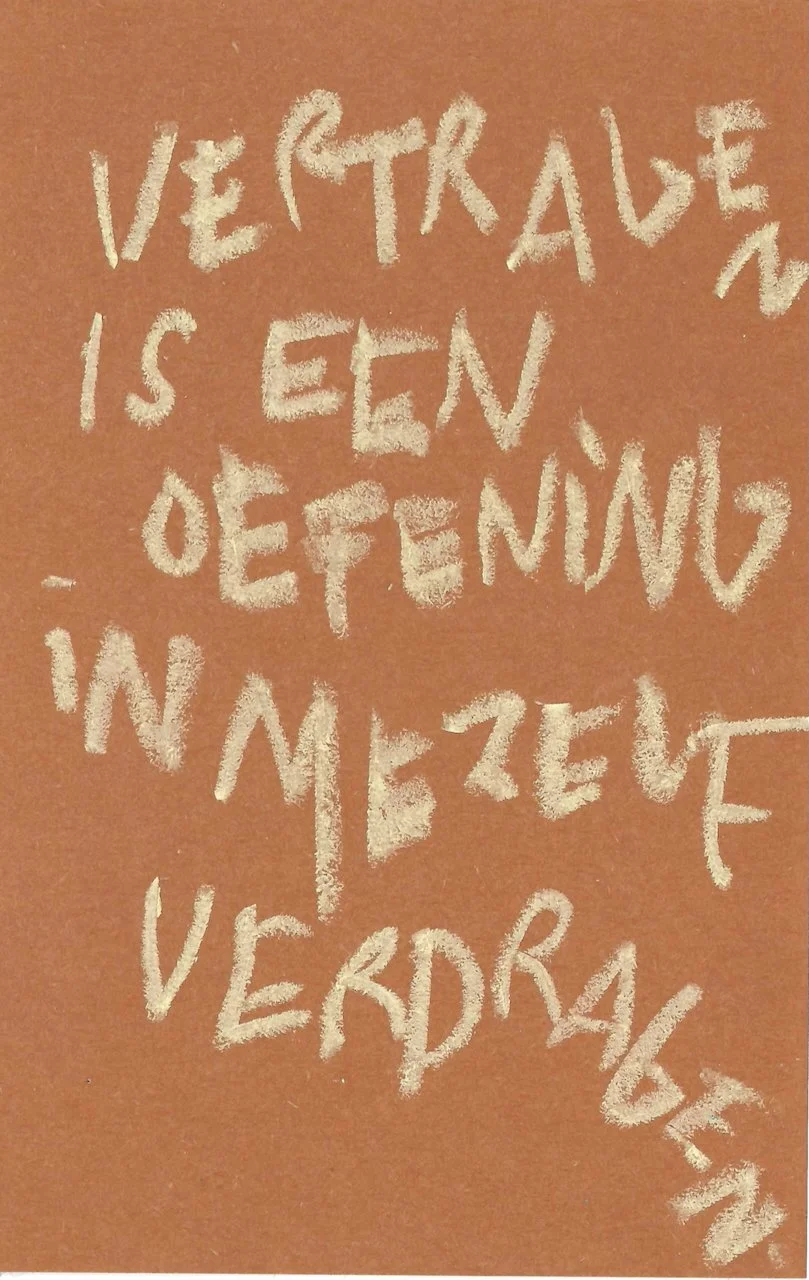 VERTRAGEN
IS EEN
OEFENING
IN MEZELF
VERDRAGEN.